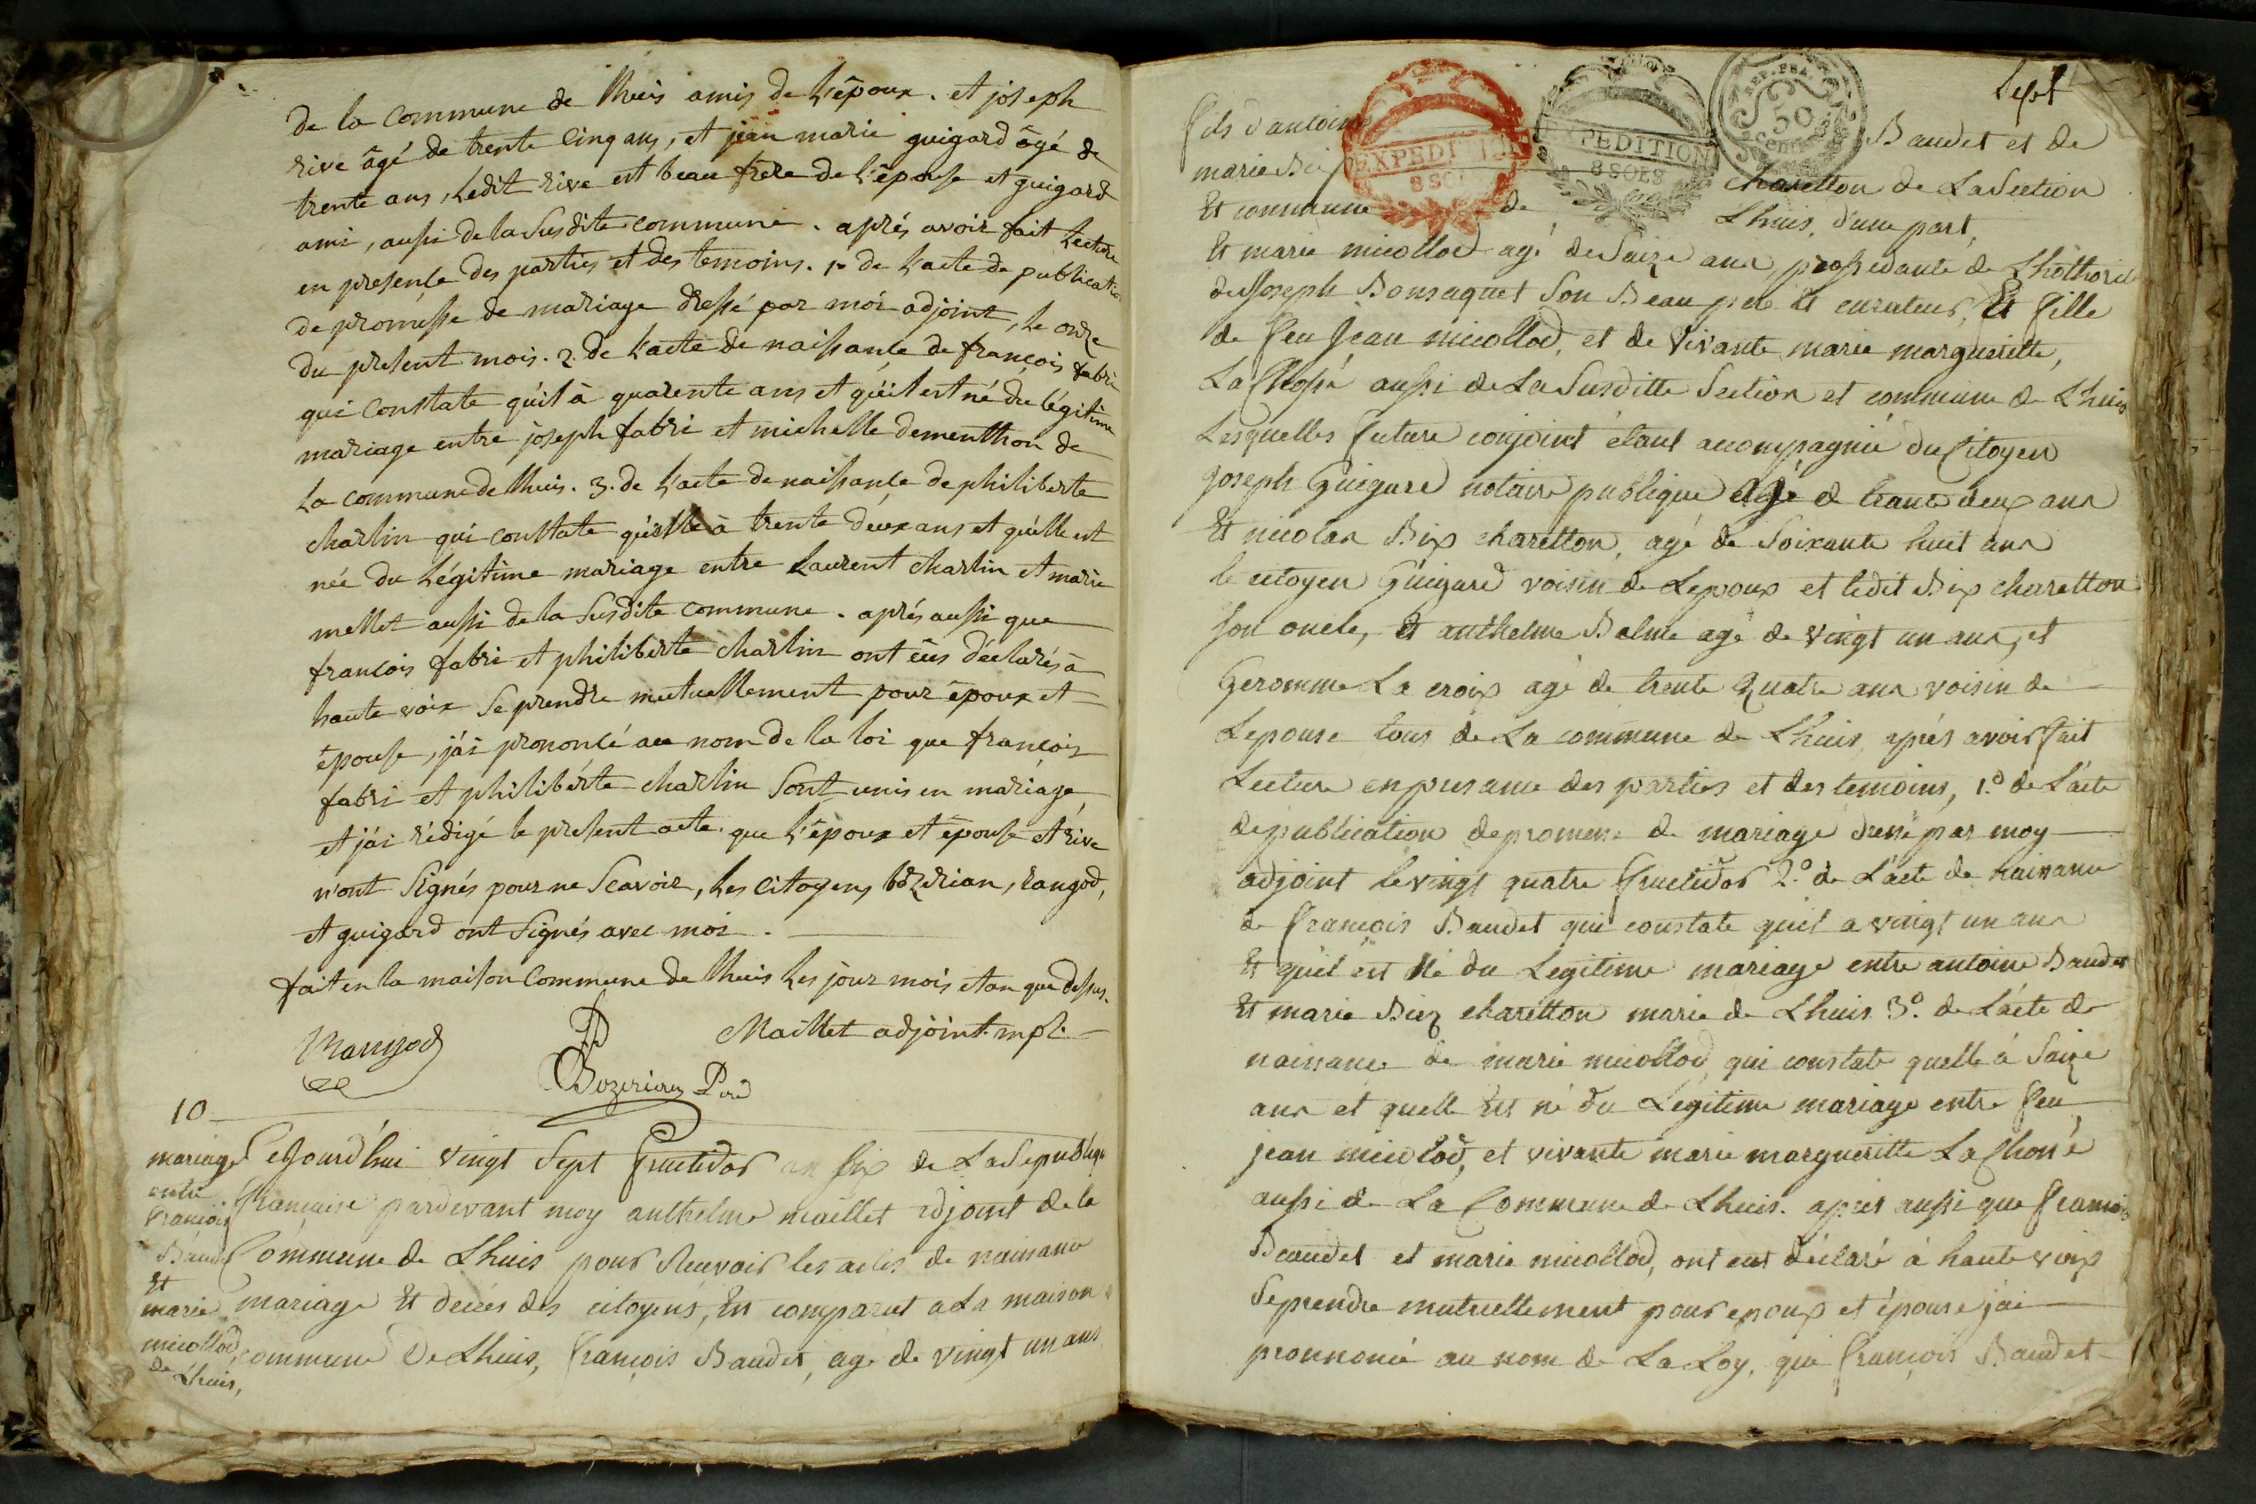 de la commune de lhuis amis de l'époux. et joseph
rive âgé de trente cinq ans, et jean marie guigard âgé de
trente ans, ledit rive est beau frere de l'épouse et guigard
ami, aussi de la susdite commune. aprés avoir fait lecture
en presence des parties et des temoins. 1º de l'acte de publication
de promesse de mariage dressé par moi adjoint, le onze
du present mois. 2. de l'acte de naissance de françois fabri
qui constate qu'il à quarente ans et qu'il est né du légitime
mariage entre joseph fabri et michelle dementhon de
la commune de lhuis. 3. de l'acte de naissance de philiberte
charlin qui constate qu'elle à trente deux ans et qu'elle est
née du légitime mariage entre Laurent charlin et marie
mellet aussi de la susdite commune. aprés aussi que
françois fabri et philiberte charlin ont eûs déclarés à
haute voix se prendre mutuellement pour époux et
épouse, j'ai prononcé au nom de la loi que françois
fabri et philibérte charlin sont unis en mariage,
et j'ai rédigé le present acte. que l'époux et épouse et rive
n'ont signés pour ne scavoir, les citoyens bozerian, rangod,
et guigard ont signés avec moi.
fait en la maison commune de lhuis les jour mois et an que dessus.
Rangod
Bozerian
Maillet adjoint mpl.
10
mariage
entre
françois
Baudet
Et
marie
micollod,
de Lhuis,
Cejourd'hui vingt sept fructidor an six de La Republique
française pardevant moy anthelme maillet adjoint de la
Commune de Lhuis pour Recevoir les actes de naissance
mariage Et decés des citoyens, Est comparut a La maison
commune De Lhuis, françois Baudet, agé de vingt un ans
Sept
EXPEDITION
8 SOLS
EXPEDITION
8 SOLS
REP. FRA.
50
CENTIMES
fils d'antoine Baudet et de
marie Bix charetton de La Section
Et commune de Lhuis, d'une part,
Et marie micollod agé de Saize ans, procedante de Lhothorité
de Joseph Bonsaquet Son Beau pere Et curateur, Et fille
de feu Jean micollod, et de Vivante marie marguerítte,
La Chossé aussi de La Susditte Section et commune de Lhuis
Lesquelles future conjoint étant accompagnié du Citoyen
Joseph Guigard notaire publique, agé de trante deux ans
Et nicolas Bix charetton, agé de Soixante huit ans
le citoyen Guigard voisin de Lepoux et ledit Bix charetton
son oncle, Et anthelme Belme agé de vingt un ans, et
Geromme La croix agé de trente Quatre ans voisin de
Lepouse tous de La commune de Lhuis, aprés avoir fait
Lecture en presance des parties et des temoins, 1º de L'acte
de publication de promesse de mariage dressé par moy
adjoint le vingt quatre fructidor 2º de L'acte de naissance
de françois Baudet qui constate qu'il a vingt un ans
Et qu'il est Né du Legitime mariage entre antoine Baudet
Et marie Bix charétton marié de Lhuis 3º de L'acte de
naissance de marie micollod, qui constate quelle à Saize
ans et quelle Est né du Legitime mariage entre feu
jean micollod, et vivante marie margueritte La Chossé
aussi de La Commune de Lhuis. apres aussi que françois
Baudet et marie micollod, ont eut déclaré à haute voix
Se prendre mutuellement pour epoux et épouse jai
pronnoncé au nom de La Loy, que françois Baudet